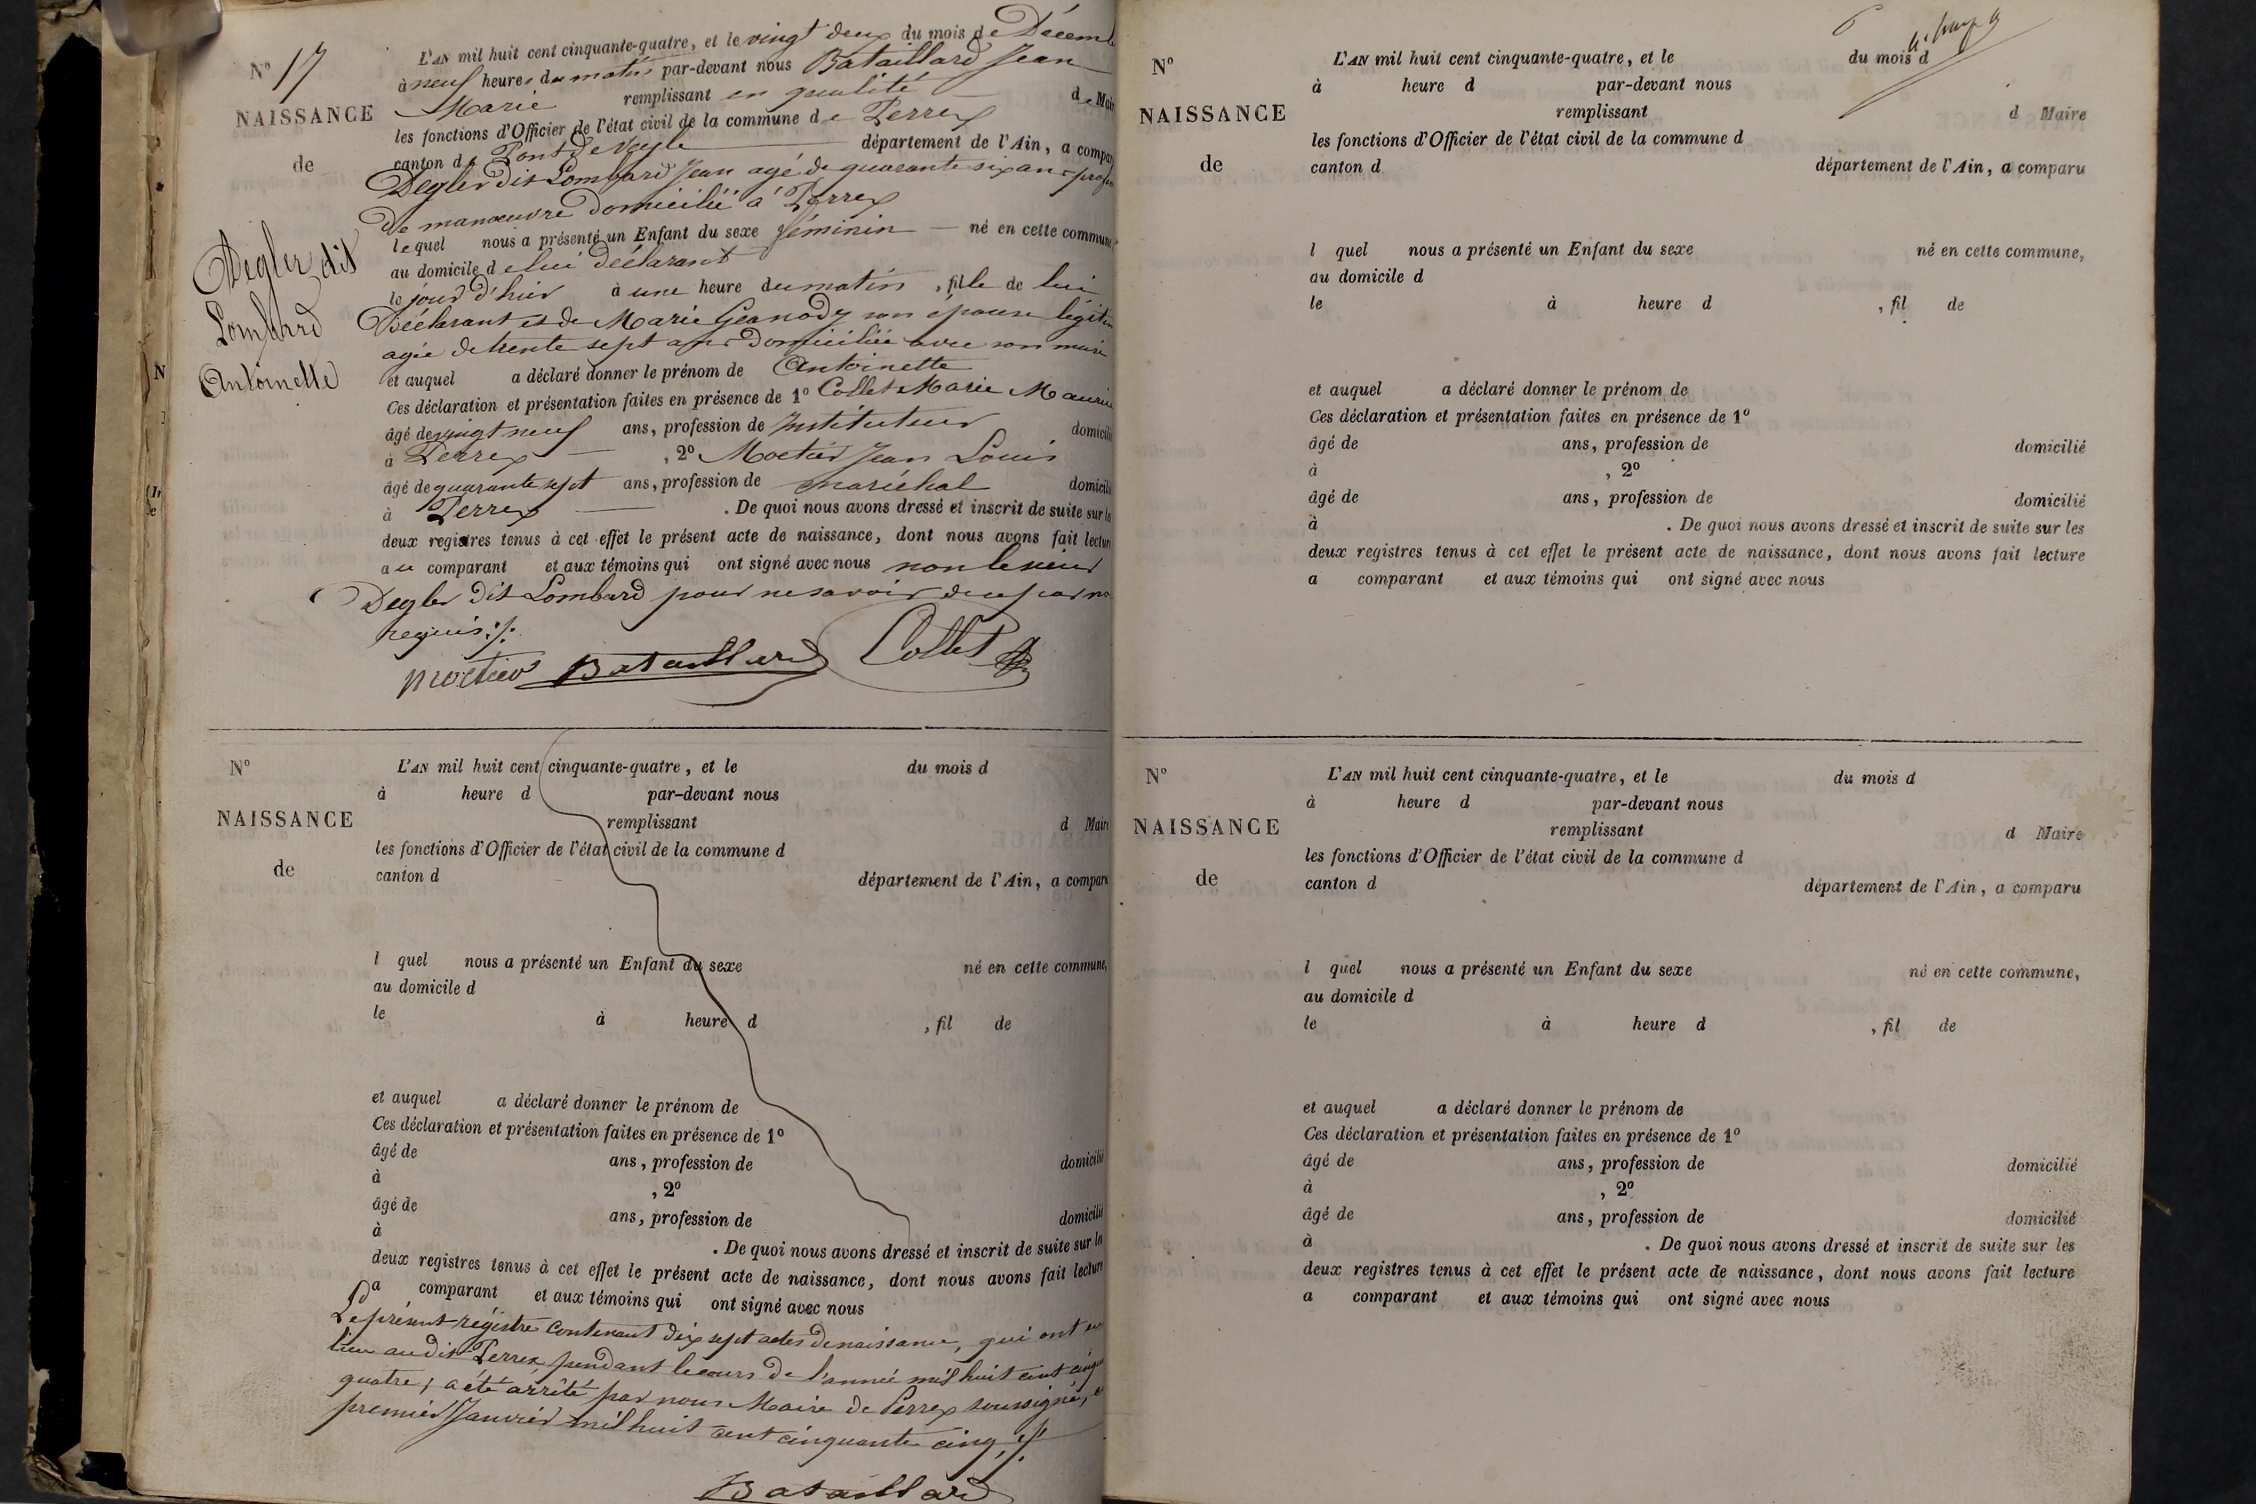 N° 17
NAISSANCE
de
Degler dit
Lombard
Antoinette
L'AN mil huit cent cinquante-quatre, et le vingt deux du mois de Décemb
à neuf heures du matin par-devant nous Bataillard Jean
Marie remplissant en qualité de Mair
les fonctions d'Officier de l'état civil de la commune de Perrex
canton de Pont de Veyle département de l'Ain, a compar
Degler dit Lombard Jean agé de quarante six ans profes
de manoeuvre domicilié à Perrex
lequel nous a présenté un Enfant du sexe féminin né en cette commune,
au domicile de lui déclarant
le jour d'hier à une heure du matin, fille de lui
Déclarant et de Marie Geanody son épouse légitim
agée de trente sept ans domiciliée avec son mari
et auquel a déclaré donner le prénom de Antoinette
Ces déclaration et présentation faites en présence de 1° Collet Marie Mauric
âgé de vingt neuf ans, profession de Instituteur domicilié
à Perrex , 2° Moctier Jean Louis
âgé de quarante sept ans, profession de maréchal domicilié
à Perrex . De quoi nous avons dressé et inscrit de suite sur les
deux registres tenus à cet effet le présent acte de naissance, dont nous avons fait lecture
au comparant et aux témoins qui ont signé avec nous non le sieur
Degler dit Lombard pour ne savoir de ce par no
requis ./.
Moctier Bataillard Collet
N°
NAISSANCE
de
L'AN mil huit cent cinquante-quatre, et le du mois d
à heure d par-devant nous
remplissant d Maire
les fonctions d'Officier de l'état civil de la commune d
canton d département de l'Ain, a comparu
l quel nous a présenté un Enfant du sexe né en cette commune,
au domicile d
le à heure d , fil de
et auquel a déclaré donner le prénom de
Ces déclaration et présentation faites en présence de 1°
âgé de ans, profession de domicilié
à , 2°
âgé de ans, profession de domicilié
à . De quoi nous avons dressé et inscrit de suite sur les
deux registres tenus à cet effet le présent acte de naissance, dont nous avons fait lecture
a comparant et aux témoins qui ont signé avec nous
Le présent régistre contenant dix sept actes de naissance, qui ont eu
lieu audit Perrex pendant le cours de l'année mil huit cent cinqu
quatre, a été arrêté par nous Maire de Perrex soussigné,
premier Janvier mil huit cent cinquante cinq ./.
Bataillard
6
N°
NAISSANCE
de
L'AN mil huit cent cinquante-quatre, et le du mois d
à heure d par-devant nous
remplissant d Maire
les fonctions d'Officier de l'état civil de la commune d
canton d département de l'Ain, a comparu
l quel nous a présenté un Enfant du sexe né en cette commune,
au domicile d
le à heure d , fil de
et auquel a déclaré donner le prénom de
Ces déclaration et présentation faites en présence de 1°
âgé de ans, profession de domicilié
à , 2°
âgé de ans, profession de domicilié
à . De quoi nous avons dressé et inscrit de suite sur les
deux registres tenus à cet effet le présent acte de naissance, dont nous avons fait lecture
a comparant et aux témoins qui ont signé avec nous
N°
NAISSANCE
de
L'AN mil huit cent cinquante-quatre, et le du mois d
à heure d par-devant nous
remplissant d Maire
les fonctions d'Officier de l'état civil de la commune d
canton d département de l'Ain, a comparu
l quel nous a présenté un Enfant du sexe né en cette commune,
au domicile d
le à heure d , fil de
et auquel a déclaré donner le prénom de
Ces déclaration et présentation faites en présence de 1°
âgé de ans, profession de domicilié
à , 2°
âgé de ans, profession de domicilié
à . De quoi nous avons dressé et inscrit de suite sur les
deux registres tenus à cet effet le présent acte de naissance, dont nous avons fait lecture
a comparant et aux témoins qui ont signé avec nous